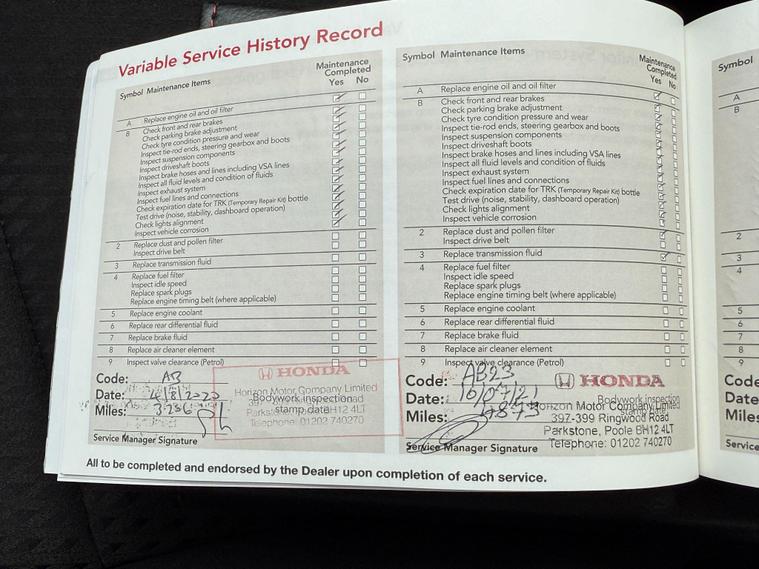 Variable Service History Record
Symbol Maintenance Items
Maintenance
Completed
Yes No
A Replace engine oil and oil filter
B Check front and rear brakes
Check parking brake adjustment
Check tyre condition pressure and wear
Inspect tie-rod ends, steering gearbox and boots
Inspect suspension components
Inspect driveshaft boots
Inspect brake hoses and lines including VSA lines
Inspect all fluid levels and condition of fluids
Inspect exhaust system
Inspect fuel lines and connections
Check expiration date for TRK (Temporary Repair Kit) bottle
Test drive (noise, stability, dashboard operation)
Check lights alignment
Inspect vehicle corrosion
2 Replace dust and pollen filter
Inspect drive belt
3 Replace transmission fluid
4 Replace fuel filter
Inspect idle speed
Replace spark plugs
Replace engine timing belt (where applicable)
5 Replace engine coolant
6 Replace rear differential fluid
7 Replace brake fluid
8 Replace air cleaner element
9 Inspect valve clearance (Petrol)
Code: AB
Date: 4/8/2020
Miles: 3256
Service Manager Signature
HONDA
Horizon Motor Company Limited
Bodywork inspection
stamp date
Parkstone, Poole BH12 4LT
Telephone: 01202 740270
Symbol Maintenance Items
Maintenance
Completed
Yes No
A Replace engine oil and oil filter
B Check front and rear brakes
Check parking brake adjustment
Check tyre condition pressure and wear
Inspect tie-rod ends, steering gearbox and boots
Inspect suspension components
Inspect driveshaft boots
Inspect brake hoses and lines including VSA lines
Inspect all fluid levels and condition of fluids
Inspect exhaust system
Inspect fuel lines and connections
Check expiration date for TRK (Temporary Repair Kit) bottle
Test drive (noise, stability, dashboard operation)
Check lights alignment
Inspect vehicle corrosion
2 Replace dust and pollen filter
Inspect drive belt
3 Replace transmission fluid
4 Replace fuel filter
Inspect idle speed
Replace spark plugs
Replace engine timing belt (where applicable)
5 Replace engine coolant
6 Replace rear differential fluid
7 Replace brake fluid
8 Replace air cleaner element
9 Inspect valve clearance (Petrol)
Code: AB23
Date: 16/07/21
Miles: 4873
Service Manager Signature
HONDA
Bodywork inspection
Horizon Motor Company Limited
397-399 Ringwood Road
Parkstone, Poole BH12 4LT
Telephone: 01202 740270
All to be completed and endorsed by the Dealer upon completion of each service.
Symbol
A
B
2
3
4
5
6
7
8
9
Code
Date
Miles
Service